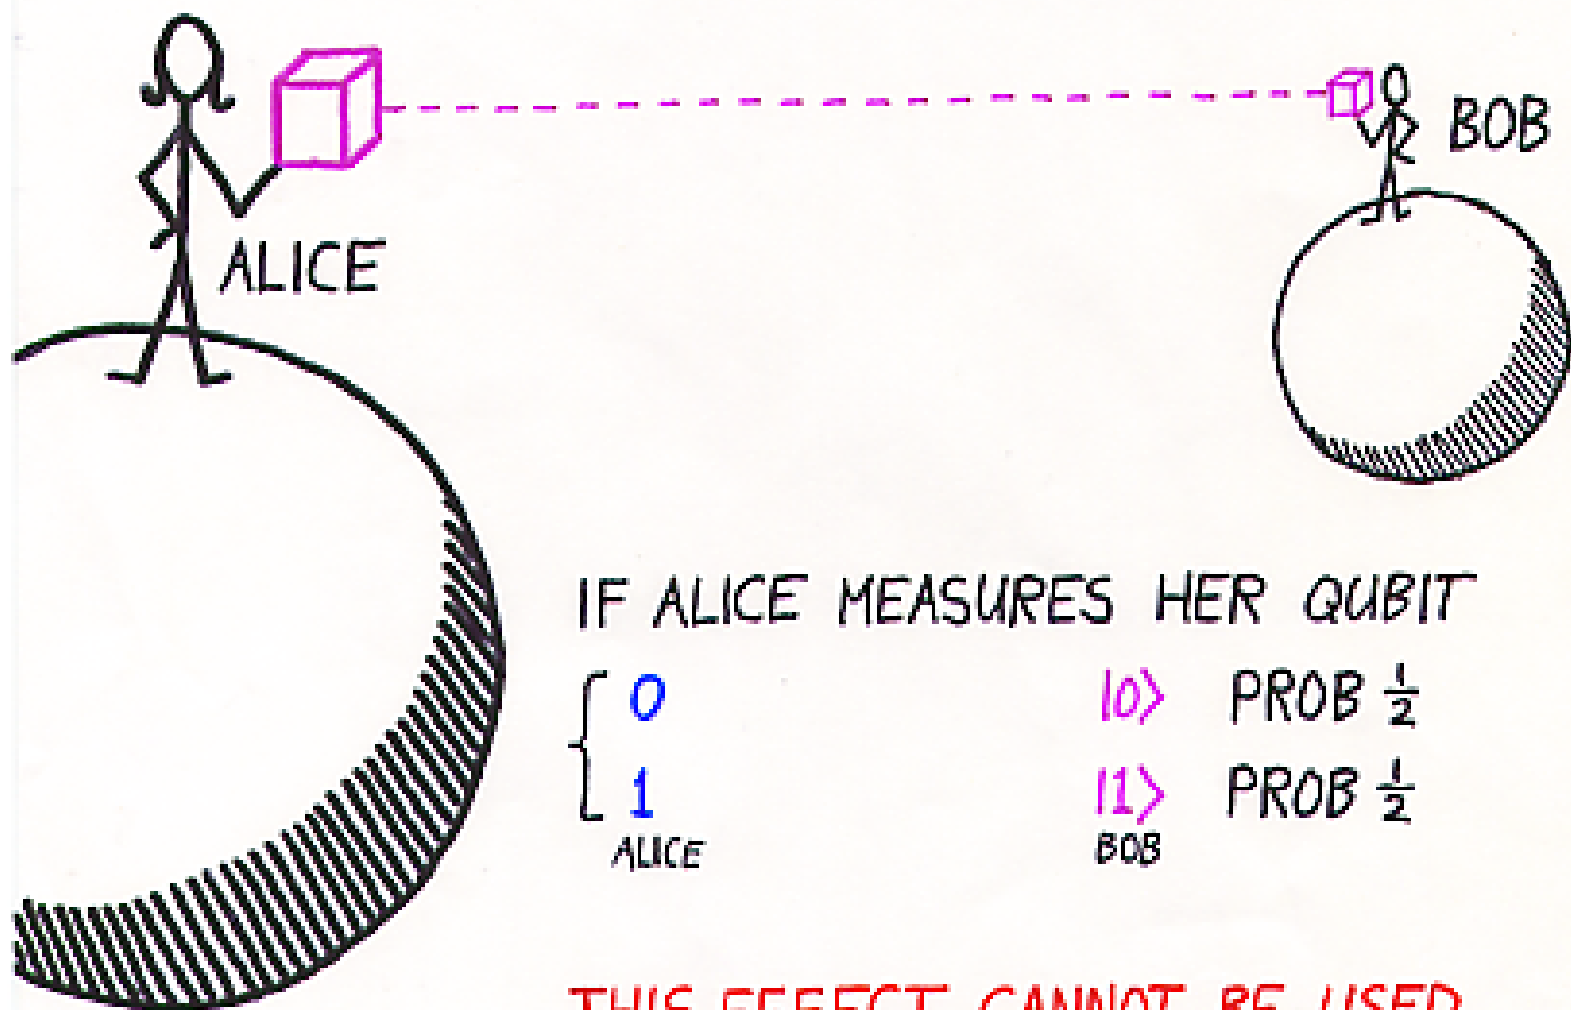 BOB
ALICE
IF ALICE MEASURES HER QUBIT
0 |0⟩ PROB 1/2
1 |1⟩ PROB 1/2
ALICE BOB
THIS EFFECT CANNOT BE USED